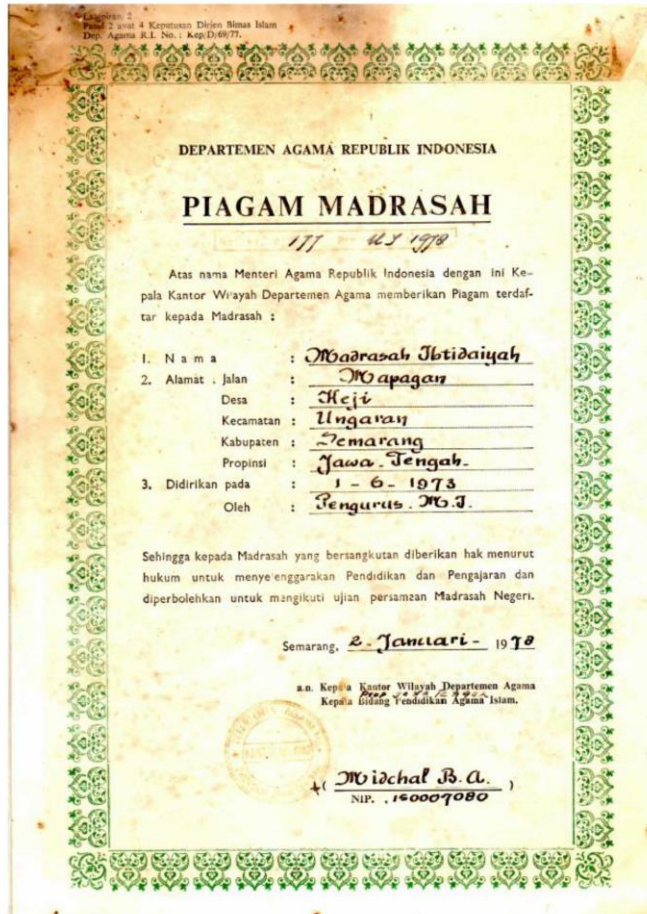 Lampiran 2
Pasal 2 ayat 4 Keputusan Dirjen Bimas Islam
Dep. Agama R.I. No. : Kep/D/69/77.
DEPARTEMEN AGAMA REPUBLIK INDONESIA
PIAGAM MADRASAH
177 1978
Atas nama Menteri Agama Republik Indonesia dengan ini Ke-
pala Kantor Wi'ayah Departemen Agama memberikan Piagam terdaf-
tar kepada Madrasah :
1. Nama : Madrasah Ibtidaiyah
2. Alamat . Jalan : Mapagan
Desa : Keji
Kecamatan : Ungaran
Kabupaten : Semarang
Propinsi : Jawa. Tengah.
3. Didirikan pada : 1 - 6 - 1973
Oleh : Pengurus. M.I.
Sehingga kepada Madrasah yang bersangkutan diberikan hak menurut
hukum untuk menye enggarakan Pendidikan dan Pengajaran dan
diperbolehkan untuk mengikuti ujian persamaan Madrasah Negeri.
Semarang, 2. Januari - 1978
a.n. Kepala Kantor Wilayah Departemen Agama
Kepala Bidang Pendidikan Agama Islam.
( Midchal B.A. )
NIP. . 150007080